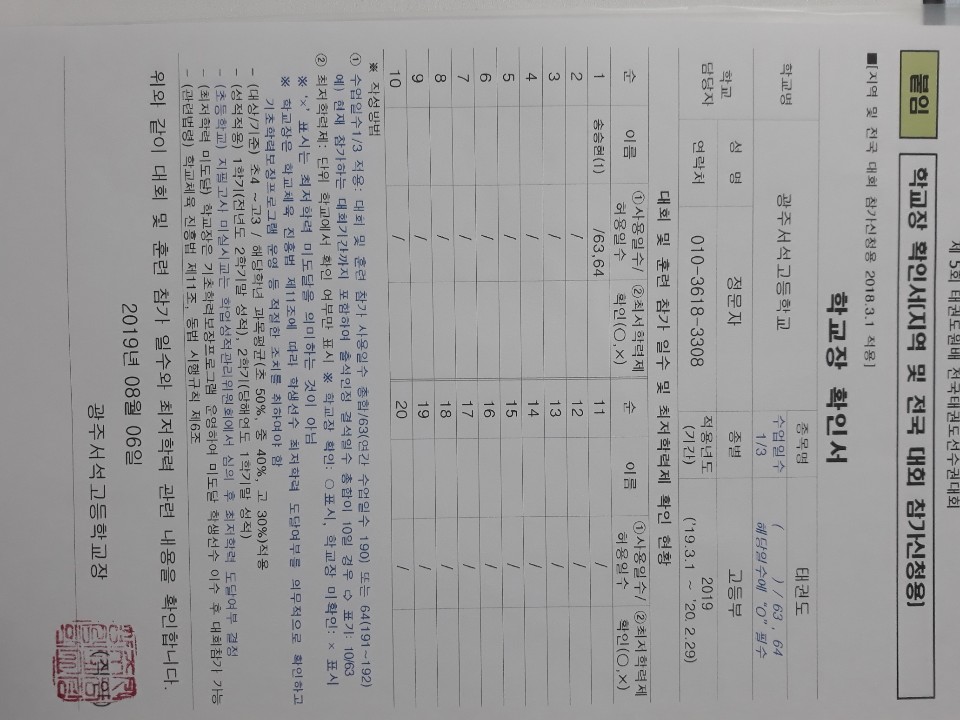 제 5회 태권도원배 전국태권도선수권대회
붙임 학교장 확인서[지역 및 전국 대회 참가신청용]
■[지역 및 전국 대회 참가신청용 2018.3.1 적용]
학교장 확인서
학교명 광주서석고등학교 종목명 태권도
수업일수 1/3 ( ) / 63 , 64
해당일수에 "O" 필수
학교 담당자 성 명 정문자 종별 고등부
연락처 010-3618-3308 적용년도 (기간) 2019
('19.3.1 ~ '20.2.29)
대회 및 훈련 참가 일수 및 최저학력제 확인 현황
순 이름 ①사용일수/허용일수 ②최저학력제 확인(○,×) 순 이름 ①사용일수/허용일수 ②최저학력제 확인(○,×)
1 송승현(1) /63,64 11 /
2 / 12 /
3 / 13 /
4 / 14 /
5 / 15 /
6 / 16 /
7 / 17 /
8 / 18 /
9 / 19 /
10 / 20 /
※ 작성방법
① 수업일수1/3 적용: 대회 및 훈련 참가 사용일수 총합/63(연간 수업일수 190) 또는 64(191~192)
예) 현재 참가하는 대회기간까지 포함하여 출석인정 결석일수 총합이 10일 경우 ⇨ 표기: 10/63
② 최저학력제: 단위 학교에서 확인 여부만 표시 ※ 학교장 확인: ○표시, 학교장 미확인: × 표시
※ '×' 표시는 최저학력 미도달을 의미하는 것이 아님
※ 학교장은 학교체육 진흥법 제11조에 따라 학생선수 최저학력 도달여부를 의무적으로 확인하고
기초학력보장프로그램 운영 등 적절한 조치를 취하여야 함
- (대상/기준) 초4 ~고3 / 해당학년 과목평균(초 50%, 중 40%, 고 30%)적용
- (성적적용) 1학기(전년도 2학기말 성적), 2학기(당해연도 1학기말 성적)
- (초등학교) 지필고사 미실시교는 학업성적관리위원회에서 심의 후 최저학력 도달여부 결정
- (최저학력 미도달) 학교장은 기초학력보장프로그램 운영하여 미도달 학생선수 이수 후 대회참가 가능
- (관련법령) 학교체육 진흥법 제11조, 동법 시행규칙 제6조
위와 같이 대회 및 훈련 참가 일수와 최저학력 관련 내용을 확인합니다.
2019년 08월 06일
광주서석고등학교장